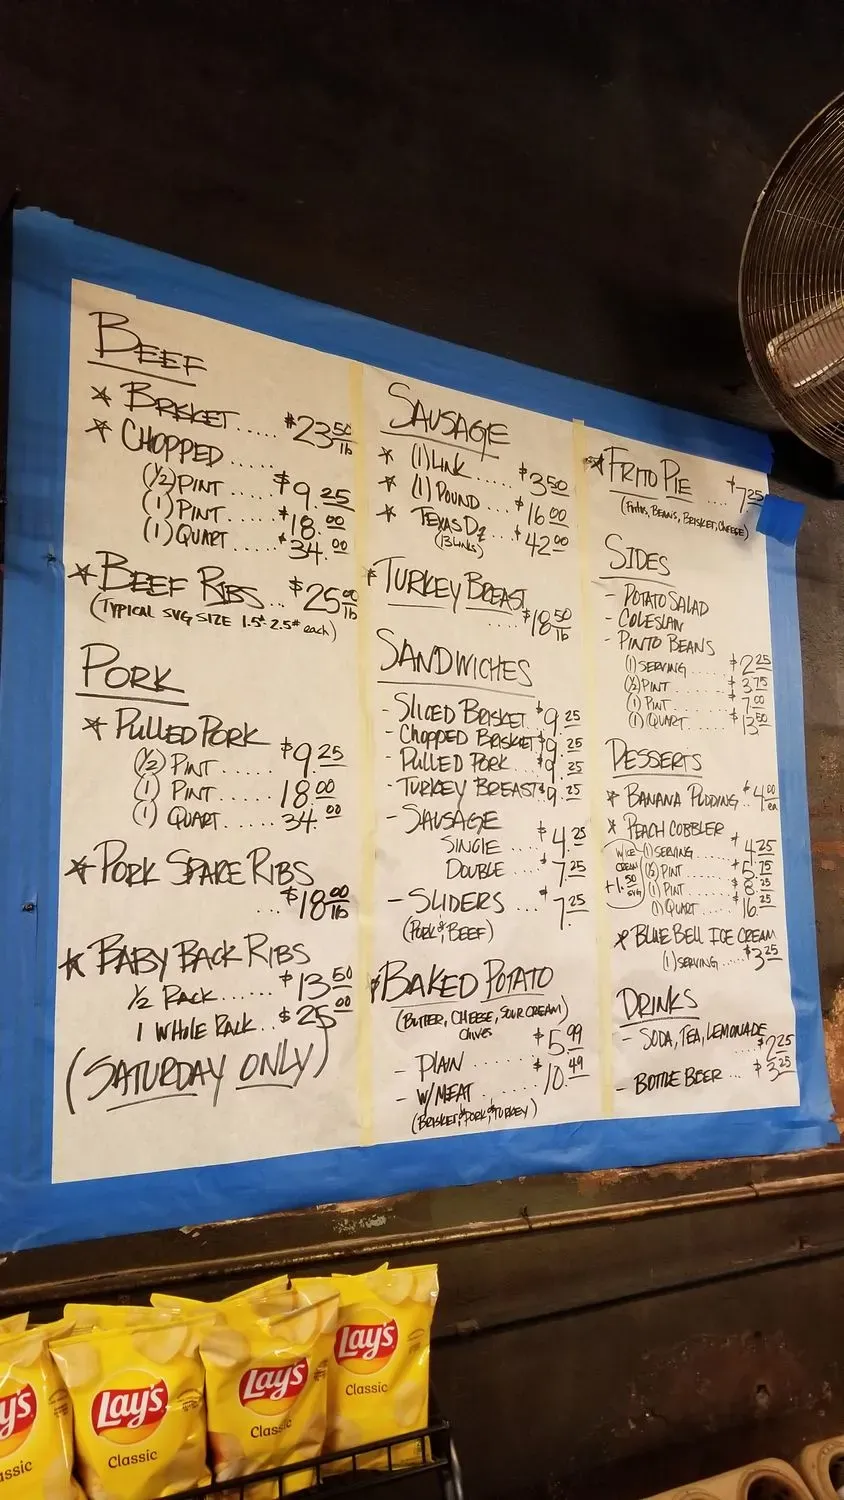 BEEF
* BRISKET ..... $23.50 lb
* CHOPPED .....
(1/2) PINT ..... $9.25
(1) PINT ..... $18.00
(1) QUART .... $34.00
* BEEF RIBS ... $25.00 lb
(TYPICAL SVG SIZE 1.5# 2.5# each)
PORK
* PULLED PORK
(1/2) PINT ..... $9.25
(1) PINT ..... 18.00
(1) QUART ..... 34.00
* PORK SPARE RIBS
... $18.00 lb
* BABY BACK RIBS
1/2 RACK ...... $13.50
1 WHOLE RACK .. $25.00
(SATURDAY ONLY)
SAUSAGE
* (1) LINK .... $3.50
* (1) POUND .... $16.00
* TEXAS DZ ... $42.00
(13 LINKS)
* TURKEY BREAST
..... $18.50 lb
SANDWICHES
- SLICED BRISKET $9.25
- CHOPPED BRISKET $9.25
- PULLED PORK ... $9.25
- TURKEY BREAST $9.25
- SAUSAGE
SINGLE ... $4.25
DOUBLE .... $7.25
- SLIDERS ... $7.25
(PORK & BEEF)
* BAKED POTATO
(BUTTER, CHEESE, SOUR CREAM)
CHIVES
- PLAIN ....... $5.99
- W/MEAT ...... $10.49
(BRISKET & PORK & TURKEY)
* FRITO PIE .... $7.25
(FRITOS, BEANS, BRISKET, CHEESE)
SIDES
- POTATO SALAD
- COLESLAW
- PINTO BEANS
(1) SERVING .... $2.25
(1/2) PINT ...... $3.75
(1) PINT ....... 7.00
(1) QUART ..... $13.50
DESSERTS
* BANANA PUDDING .. $4.00 ea
* PEACH COBBLER
(1) SERVING .... $4.25
(1/2) PINT ..... $5.75
(1) PINT ...... $8.25
(1) QUART ..... $16.25
W/ ICE
CREAM
+1.50
SVG
* BLUE BELL ICE CREAM
(1) SERVING ..... $3.25
DRINKS
- SODA, TEA, LEMONADE
..... $2.25
- BOTTLE BEER ... $3.25
Lay's
Classic
Lay's
Classic
Lay's
Classic
ay's
assic